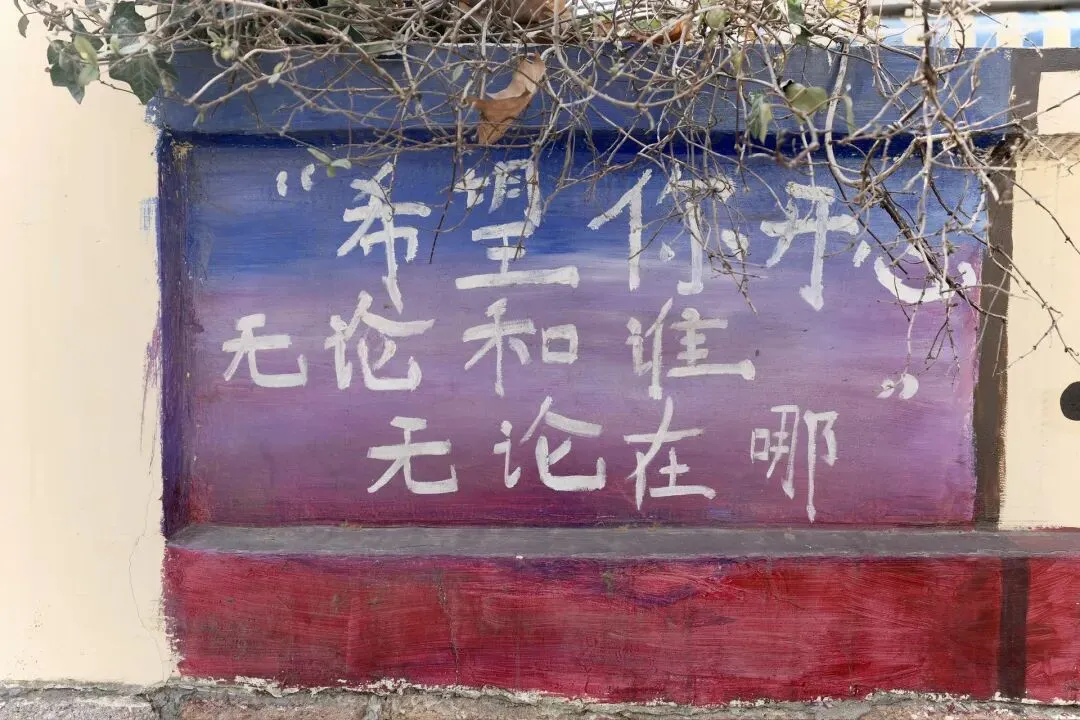 “希望你开心
无论和谁”
无论在哪